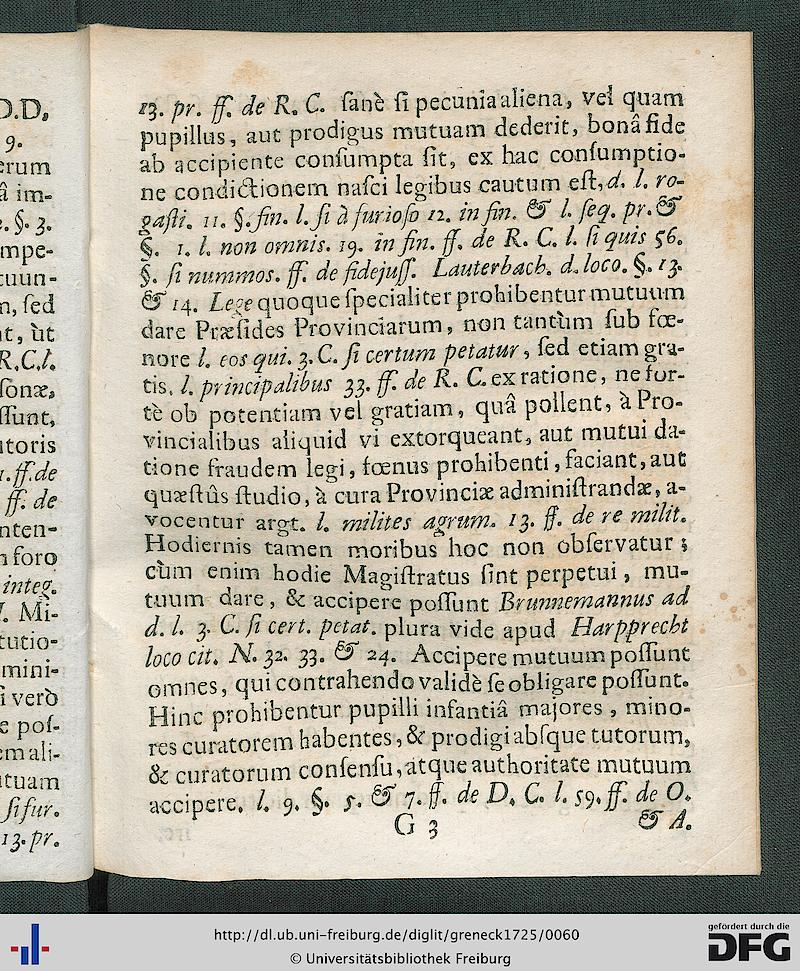 D.D,
9.
erum
â im-
. §. 3.
mpe-
cuun-
n, ſed
nt, ùt
R.C.l.
ſonæ,
ſſunt,
utoris
1. ff. de
ff. de
nten-
n foro
integ.
Mi-
tutio-
mini-
ſi verò
e poſ-
em ali-
utuam
ſi fur.
13. pr.
13. pr. ff. de R. C. ſanè ſi pecunia aliena, vel quam
pupillus, aut prodigus mutuam dederit, bonâ fide
ab accipiente conſumpta ſit, ex hac conſumptio-
ne condictionem naſci legibus cautum eſt, d. l. ro-
gaſti. 11. §. fin. l. ſi à furioſo 12. in fin. & l. ſeq. pr. &
§. 1. l. non omnis. 19. in fin. ff. de R. C. l. ſi quis 56.
§. ſi nummos. ff. de fidejuſſ. Lauterbach. d. loco. §. 13.
& 14. Lege quoque ſpecialiter prohibentur mutuum
dare Præſides Provinciarum, non tantùm ſub fœ-
nore l. eos qui. 3. C. ſi certum petatur, ſed etiam gra-
tis, l. principalibus 33. ff. de R. C. ex ratione, ne for-
tè ob potentiam vel gratiam, quâ pollent, à Pro-
vincialibus aliquid vi extorqueant, aut mutui da-
tione fraudem legi, fœnus prohibenti, faciant, aut
quæſtûs ſtudio, à cura Provinciæ adminiſtrandæ, a-
vocentur argt. l. milites agrum. 13. ff. de re milit.
Hodiernis tamen moribus hoc non obſervatur;
cùm enim hodie Magiſtratus ſint perpetui, mu-
tuum dare, & accipere poſſunt Brunnemannus ad
d. l. 3. C. ſi cert. petat. plura vide apud Harpprecht
loco cit. N. 32. 33. & 24. Accipere mutuum poſſunt
omnes, qui contrahendo validè ſe obligare poſſunt.
Hinc prohibentur pupilli infantiâ majores, mino-
res curatorem habentes, & prodigi abſque tutorum,
& curatorum conſenſu, atque authoritate mutuum
accipere. l. 9. §. 5. & 7. ff. de D. C. l. 59. ff. de O.
G 3 & A.
http://dl.ub.uni-freiburg.de/diglit/greneck1725/0060
© Universitätsbibliothek Freiburg
gefördert durch die
DFG